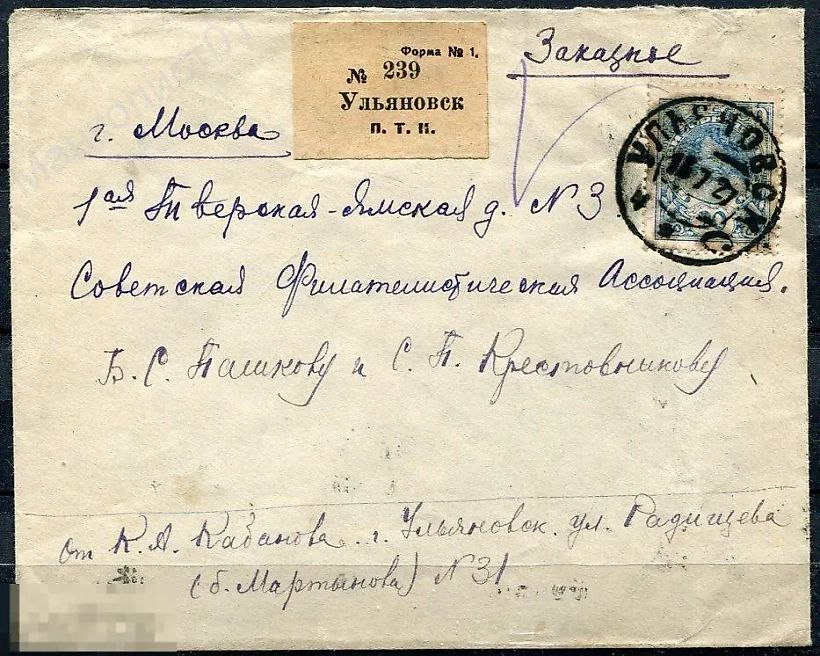 Форма № 1.
№ 239
Ульяновск
П. Т. К.
Заказное
г. Москва
УЛЬЯНОВСК
18 7 27
1ая Тверская-Ямская д. N 3
Советская Филателистическая Ассоциация.
Б. С. Пашкову и С. П. Крестовникову
от К. А. Кабанова. г. Ульяновск. ул. Радищева
(б. Мартынова) N 31